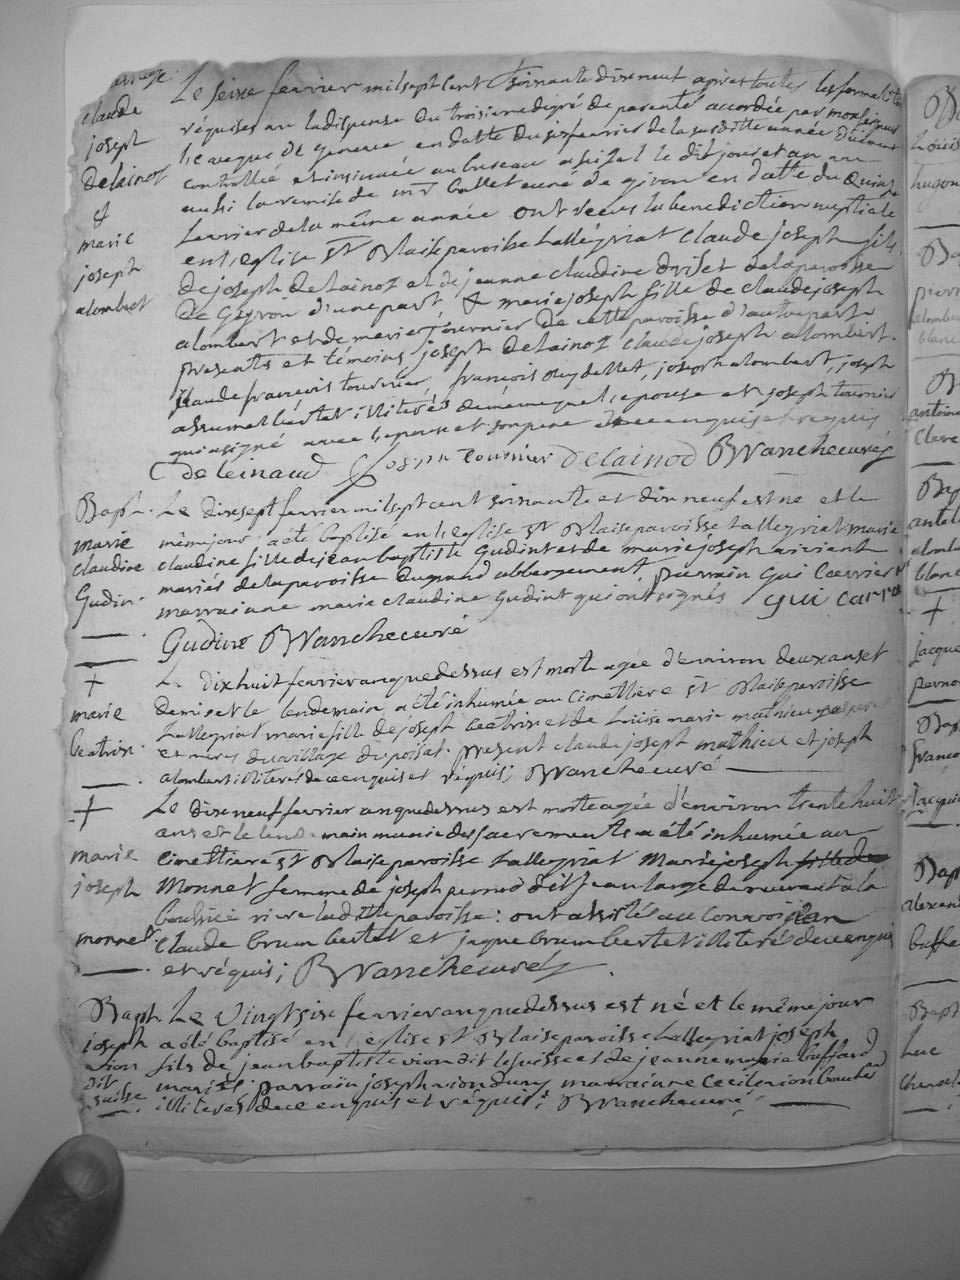 claude
joseph
Delainoz
et
marie
joseph
alombert
Le seize fevrier mil sept cent soixante dix neuf apres toutes les formalités
réquises vu la dispense du troisieme degré de parenté accordée par monseigneur
l'eveque de geneve en datte du six fevrier de la susditte année duement
controllée et insinuée au bureau le dit jour et an vu
aussi la remise de mr ballet curé de giron en datte du quinze
fevrier de la même année ont reçus la benediction nuptiale
en l'eglise st blaise paroisse Lallegriat claude joseph fils
de joseph delainoz et de jeanne claudine de la paroisse
de giron d'une part, & marie joseph fille de claude joseph
alombert et de marie tournier de cette paroisse d'autre part
presents et témoins joseph delainoz claude joseph alombert
claude françois tournier, françois, joseph alombert, joseph
illiterés de même que l'epouse et joseph tournier
qui a signé avec l'epoux et son pere enquis et requis
Joseph tournier delainod BVvanche curé
Bapt.
marie
claudine
Gudin.
Le dixsept fevrier mil sept cent soixante et dix neuf est né et le
même jour a été baptisé en l'eglise st blaise paroisse Lallegriat marie
claudine fille de jean baptiste Gudin et de marie joseph vivient
mariés de la paroisse du grand abbergement, parrain gui carrier
marraine marie claudine Gudin qui ont signés gui carr
Gudine BVvanche curé
+
marie
beatrix.
Le dixhuit fevrier an que dessus est morte agée d'environ deux ans et
demi et le lendemain a été inhumée au cimettiere st blaise paroisse
Lallegriat marie fille de joseph beatrix et de Louise marie mathieu
et mere du village du poisat. présent claude joseph mathieu et joseph
alombert illiterés de ce enquis et réquis; BVvanche curé
+
marie
joseph
monnet
Le dix neuf fevrier an que dessus est morte agée d'environ trente huit
ans et le lendemain munie des sacrements a été inhumée au
cimettiere st blaise paroisse Lallegriat marie joseph fille de
monnet femme de joseph pernod dit jean
riere la ditte paroisse: ont assistés au convoi jean
claude brun bertet et jaque brun bertet illiterés de ce enquis
et réquis; BVvanche curé
Bapt.
joseph
vion
dit
suisse
Le vingt six fevrier an que dessus est né et le même jour
a été baptisé en l'eglise st blaise paroisse Lallegriat joseph
fils de jean baptiste vion dit le suisse et de jeanne maria buffard
mariés. parrain joseph vion marraine Cecile vion
illiterés de ce enquis et réquis; BVvanche curé
Louis
hugon
antoine
Clere
blanc
+
jacque
Luc